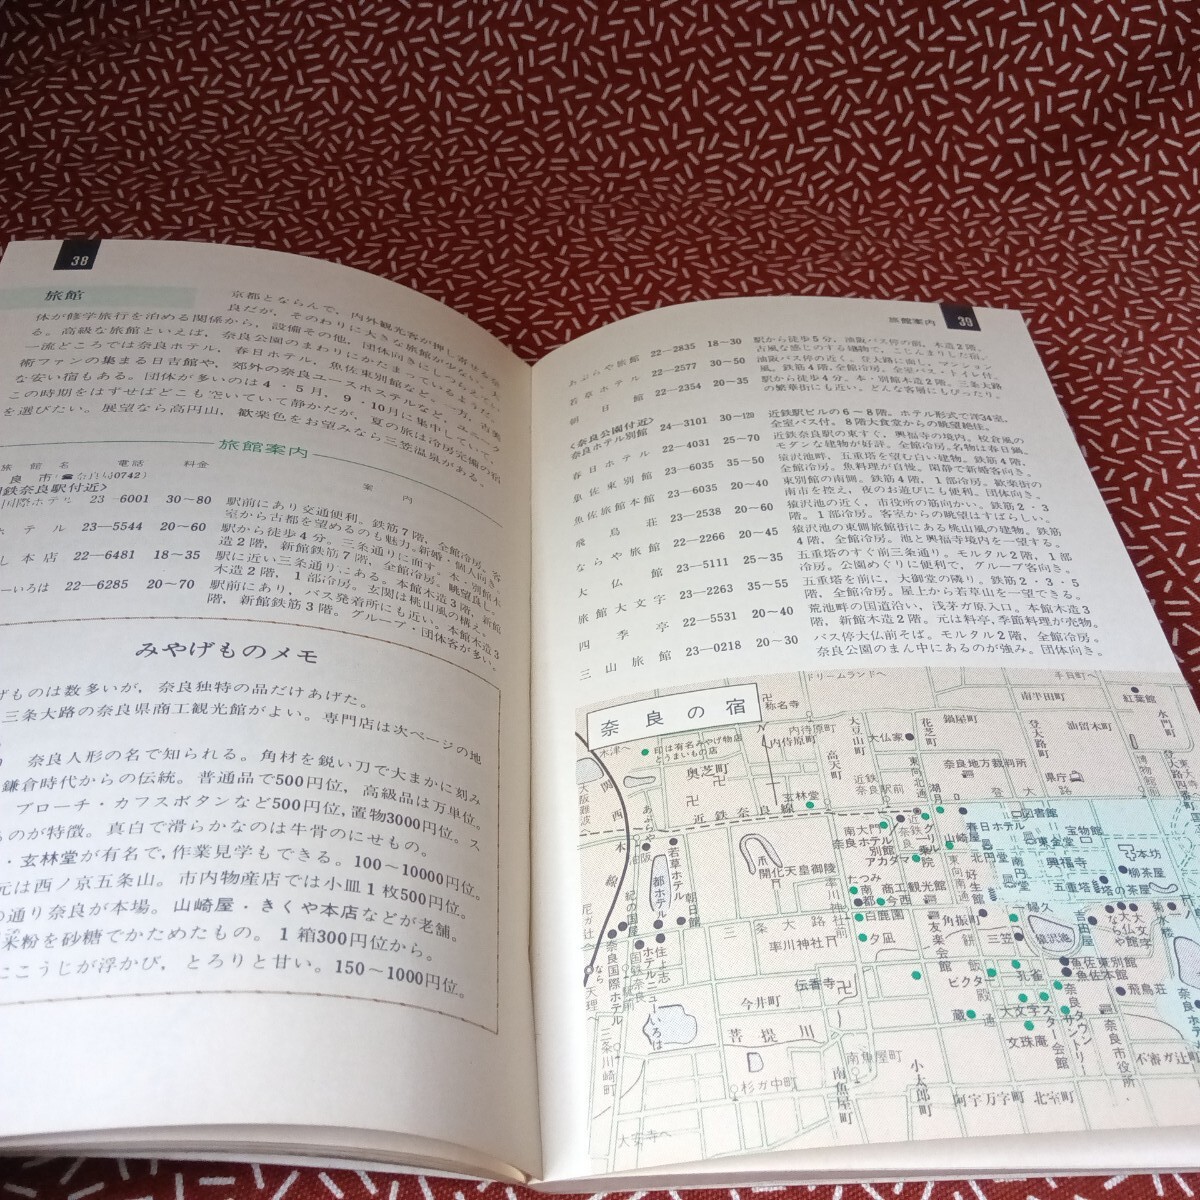 38
旅館
京都とならんで、内外観光客が押し寄せる奈
良だが、そのわりに大きな旅館が少ない。大
体が修学旅行を泊める関係から、設備その他、団体向きにしつらえてい
る。高級な旅館といえば、奈良公園のまわりにかたまっているようだ。
一流どころでは奈良ホテル、春日ホテル、魚佐東別館など。一方、古美
術ファンの集まる日吉館や、郊外の奈良ユースホステルなど、ユニーク
な安い宿もある。団体が多いのは4・5月、9・10月に集中していて、
この時期をはずせばどこも空いていて静かだが、夏の旅は冷房完備の宿
を選びたい。展望なら高円山、歓楽色をお望みなら三笠温泉がある。
旅館案内
旅館名 電話 料金 案内
良市(☎奈良局0742)
鉄奈良駅付近>
国際ホテル 23—6001 30~80 駅前にあり交通便利。鉄筋7階、全館冷房。客
室から古都を望めるのも魅力。新婚・個人向き
ホテル 23—5544 20~60 駅から徒歩4分。三条通りに面す。本館木
造2階、新館鉄筋7階、全館冷房。眺望良し。
し本店 22—6481 18~35 駅に近い三条通りこある。本館木造3階、別館
木造2階、1部冷房。玄関は桃山風の構え。
ーいろは 22—6285 20~70 駅前にあり、バス発着所にも近い。本館木造3
階、新館鉄筋3階。グループ・団体客が多い。
みやげものメモ
げものは数多いが、奈良独特の品だけあげた。
三条大路の奈良県商工観光館がよい。専門店は次ページの地
奈良人形の名で知られる。角材を鋭い刀で大まかに刻み
鎌倉時代からの伝統。普通品で500円位、高級品は万単位。
ブローチ・カフスボタンなど500円位,置物3000円位。ス
ものが特徴。真白で滑らかなのは牛骨のにせもの。
・玄林堂が有名で,作業見学もできる。100~10000円位。
元は西ノ京五条山。市内物産店では小皿1枚500円位。
の通り奈良が本場。山崎屋・きくや本店などが老舗。
米粉を砂糖でかためたもの。1箱300円位から。
ここうじが浮かび、とろりと甘い。150~1000円位。
旅館案内 39
あぶらや旅館 22—2835 18~30 駅から徒歩5分、油阪バス停の前。木造2階。
古風な感じのする建物で、こじんまりした宿。
若草ホテル 22—2577 30~50 油阪バス停の近く、登大路に面し、マンション
風。鉄筋4階,全館冷房。全室バス・トイレ付。
朝日館 22—2354 20~35 駅から徒歩4分。本・別館木造2階。三条大路
の繁華街にも近い。どんな客層にもぴったり。
<奈良公園付近>
奈良ホテル別館 24—3101 30~120 近鉄駅ビルの6~8階。ホテル形式で洋34室。
全室バス付。8階大食堂からの眺望絶佳。
春日ホテル 22—4031 25~70 近鉄奈良駅の東すぐ、興福寺の境内。校倉風の
モダンな建物が好評。全館冷房。名物は春日鍋。
魚佐東別館 23—6035 35~50 猿沢池畔、五重塔を望む白い建物。鉄筋4階、
全館冷房。魚料理が自慢。閑静で新婚客向き。
魚佐旅館本館 23—6035 20~40 東別館の南側。鉄筋4階、1部冷房。歓楽街の
南市を控え、夜のお遊びにも便利。団体向き。
飛鳥荘 23—2538 20~60 猿沢池の近く、市役所の筋向かい。鉄筋2・3
階。1部冷房。客室からの眺望はすばらしい。
ならや旅館 22—2266 20~45 猿沢池の東側旅館街にある桃山風の建物。鉄筋
4階、全館冷房。池と興福寺境内を一望する。
大仏館 23—5111 25~35 五重塔のすぐ前三条通り。モルタル2階,1部
冷房。公園めぐりに便利で、グループ客向き。
旅館大文字 23—2263 35~55 五重塔を前に、大御堂の隣り。鉄筋2・3・5
階、全館冷房。屋上から若草山を一望できる。
四季亭 22—5531 20~40 荒池畔の国道沿い,浅茅ガ原入口。本館木造3
階,新館木造2階。元は料亭,季節料理が売物。
三山旅館 23—0218 20~30 バス停大仏前そば。モルタル2階、全館冷房。
奈良公園のまん中にあるのが強み。団体向き。
奈良の宿
ドリームランドへ
手貝町へ
木津へ
印は有名みやげ物店
とうまいもの店
卍称名寺
内侍原町
奥芝町
大豆山町
高天町
花芝町
鍋屋町
南半田町
登大路町
油留木町
紅葉館
水門町
大仏家
奈良地方裁判所
県庁
登大路
大阪難波へ
関西本線
近鉄奈良線
玄林堂
東向北
近鉄奈良駅前
湖月
図書館
あぶらや
油阪
若草ホテル
都ホテル
朝日館
開化天皇御陵
南大門
奈良ホテル別館
アカダマ
近鉄奈良
グリル
菊水
山崎屋
春日ホテル
北円堂
東金堂
興福寺
宝物館
本坊
柳茶屋
五重塔
塔の茶屋
たつみ
南都
商工観光館
今西
白鹿園
夕凪
率川神社
三条大路
角振町
友楽会館
餅飯殿通
三笠
猿沢池
吉田屋
ならや
大仏館
大文字
菊水楼
魚佐東別館
魚佐本館
飛鳥荘
紀の国屋
奈良国際ホテル
住吉
ホテルニューいろは
伝香寺
今井町
菩提川
杉ガ中町
三条川崎町
大安寺へ
天理へ
ビクター
蔵
孔雀
大文字
文珠庵
スター会館
奈良タウン
サントリー
奈良市役所
不審ガ辻町
南魚屋町
南魚屋町
小太郎町
阿字万字町
北室町